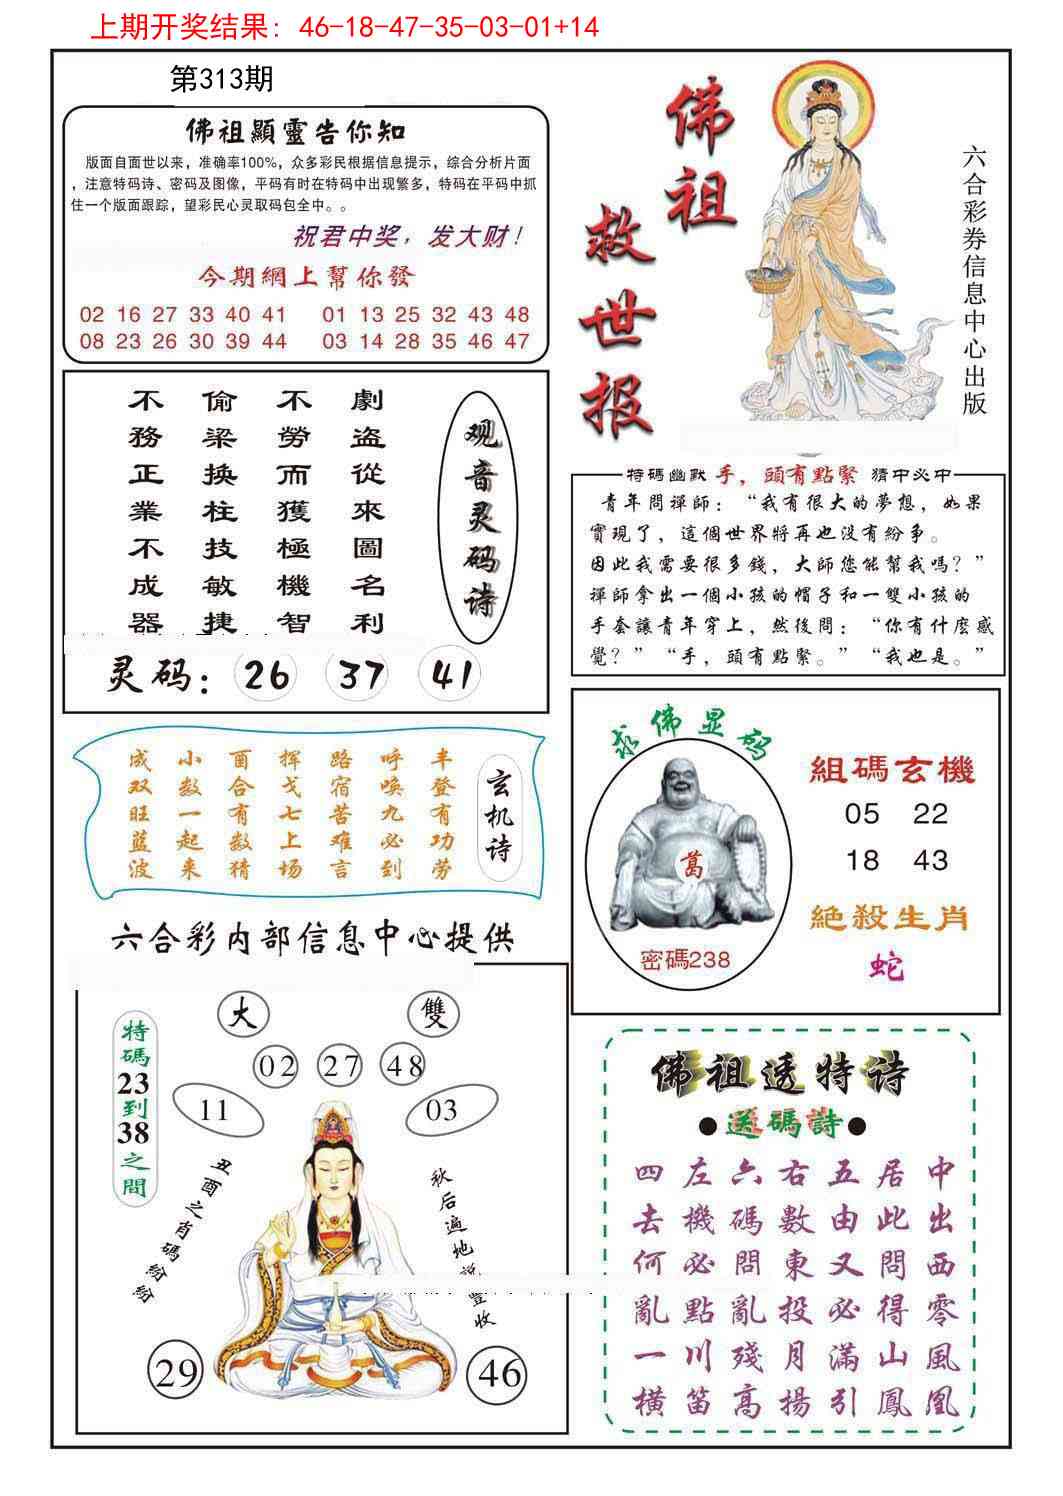 上期开奖结果: 46-18-47-35-03-01+14
第313期
佛祖顯靈告你知
版面自面世以来，准确率100%，众多彩民根据信息提示，综合分析片面
，注意特码诗、密码及图像，平码有时在特码中出现繁多，特码在平码中抓
住一个版面跟踪，望彩民心灵取码包全中。。
祝君中奖，发大财！
今期網上幫你發
02 16 27 33 40 41 01 13 25 32 43 48
08 23 26 30 39 44 03 14 28 35 46 47
佛祖
救世报
六合彩券信息中心出版
观音灵码诗
劇盗從來圖名利
不勞而獲極機智
偷梁换柱技敏捷
不務正業不成器
灵码：26 37 41
特碼幽默 手，頭有點緊 猜中必中
青年問禪師：“我有很大的夢想，如果
實現了，這個世界將再也没有紛争。
因此我需要很多錢，大師您能幫我嗎？”
禪師拿出一個小孩的帽子和一雙小孩的
手套讓青年穿上，然後問：“你有什麼感
覺？”“手，頭有點緊。”“我也是。”
玄机诗
丰登有功劳
呼唤九必到
路宿苦难言
挥戈七上场
酉合有数猜
小数一起来
成双旺蓝波
求佛显码
萬
密碼238
組碼玄機
05 22
18 43
絕殺生肖
蛇
六合彩内部信息中心提供
大 雙
02 27 48
11 03
特碼23到38之間
丑酉之肖碼紛紛
秋后遍地 豐收
29 46
佛祖透特诗
●送碼詩●
中出西零風凰
居此問得山鳳
五由又必滿引
右數東投月揚
六碼問亂殘高
左機必點川笛
四去何亂一横